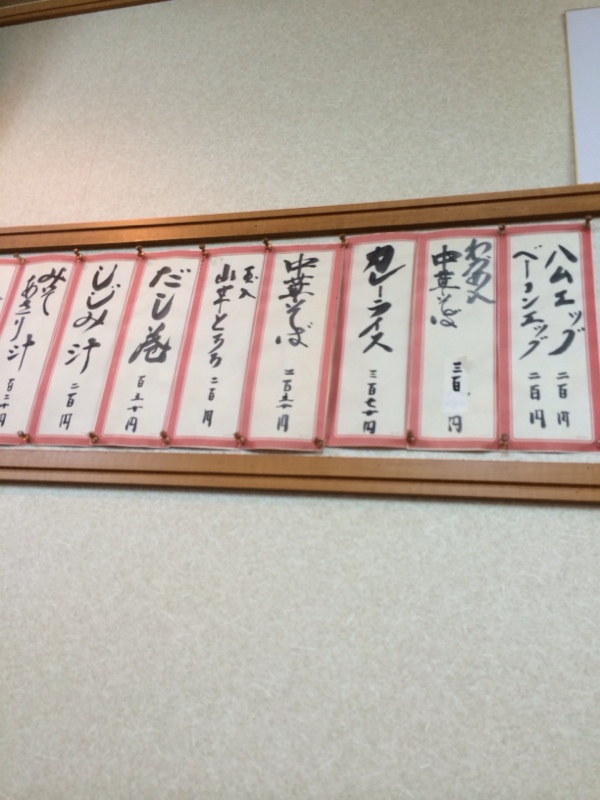 ハムエッグ 二百円
ベーコンエッグ 二百円
わかめ入
中華そば 三百円
カレーライス 三百七十円
中華そば 二百五十円
玉入
山芋とろろ 二百円
だし巻 百五十円
しじみ汁 二百円
みそ
あさり汁 百二十円